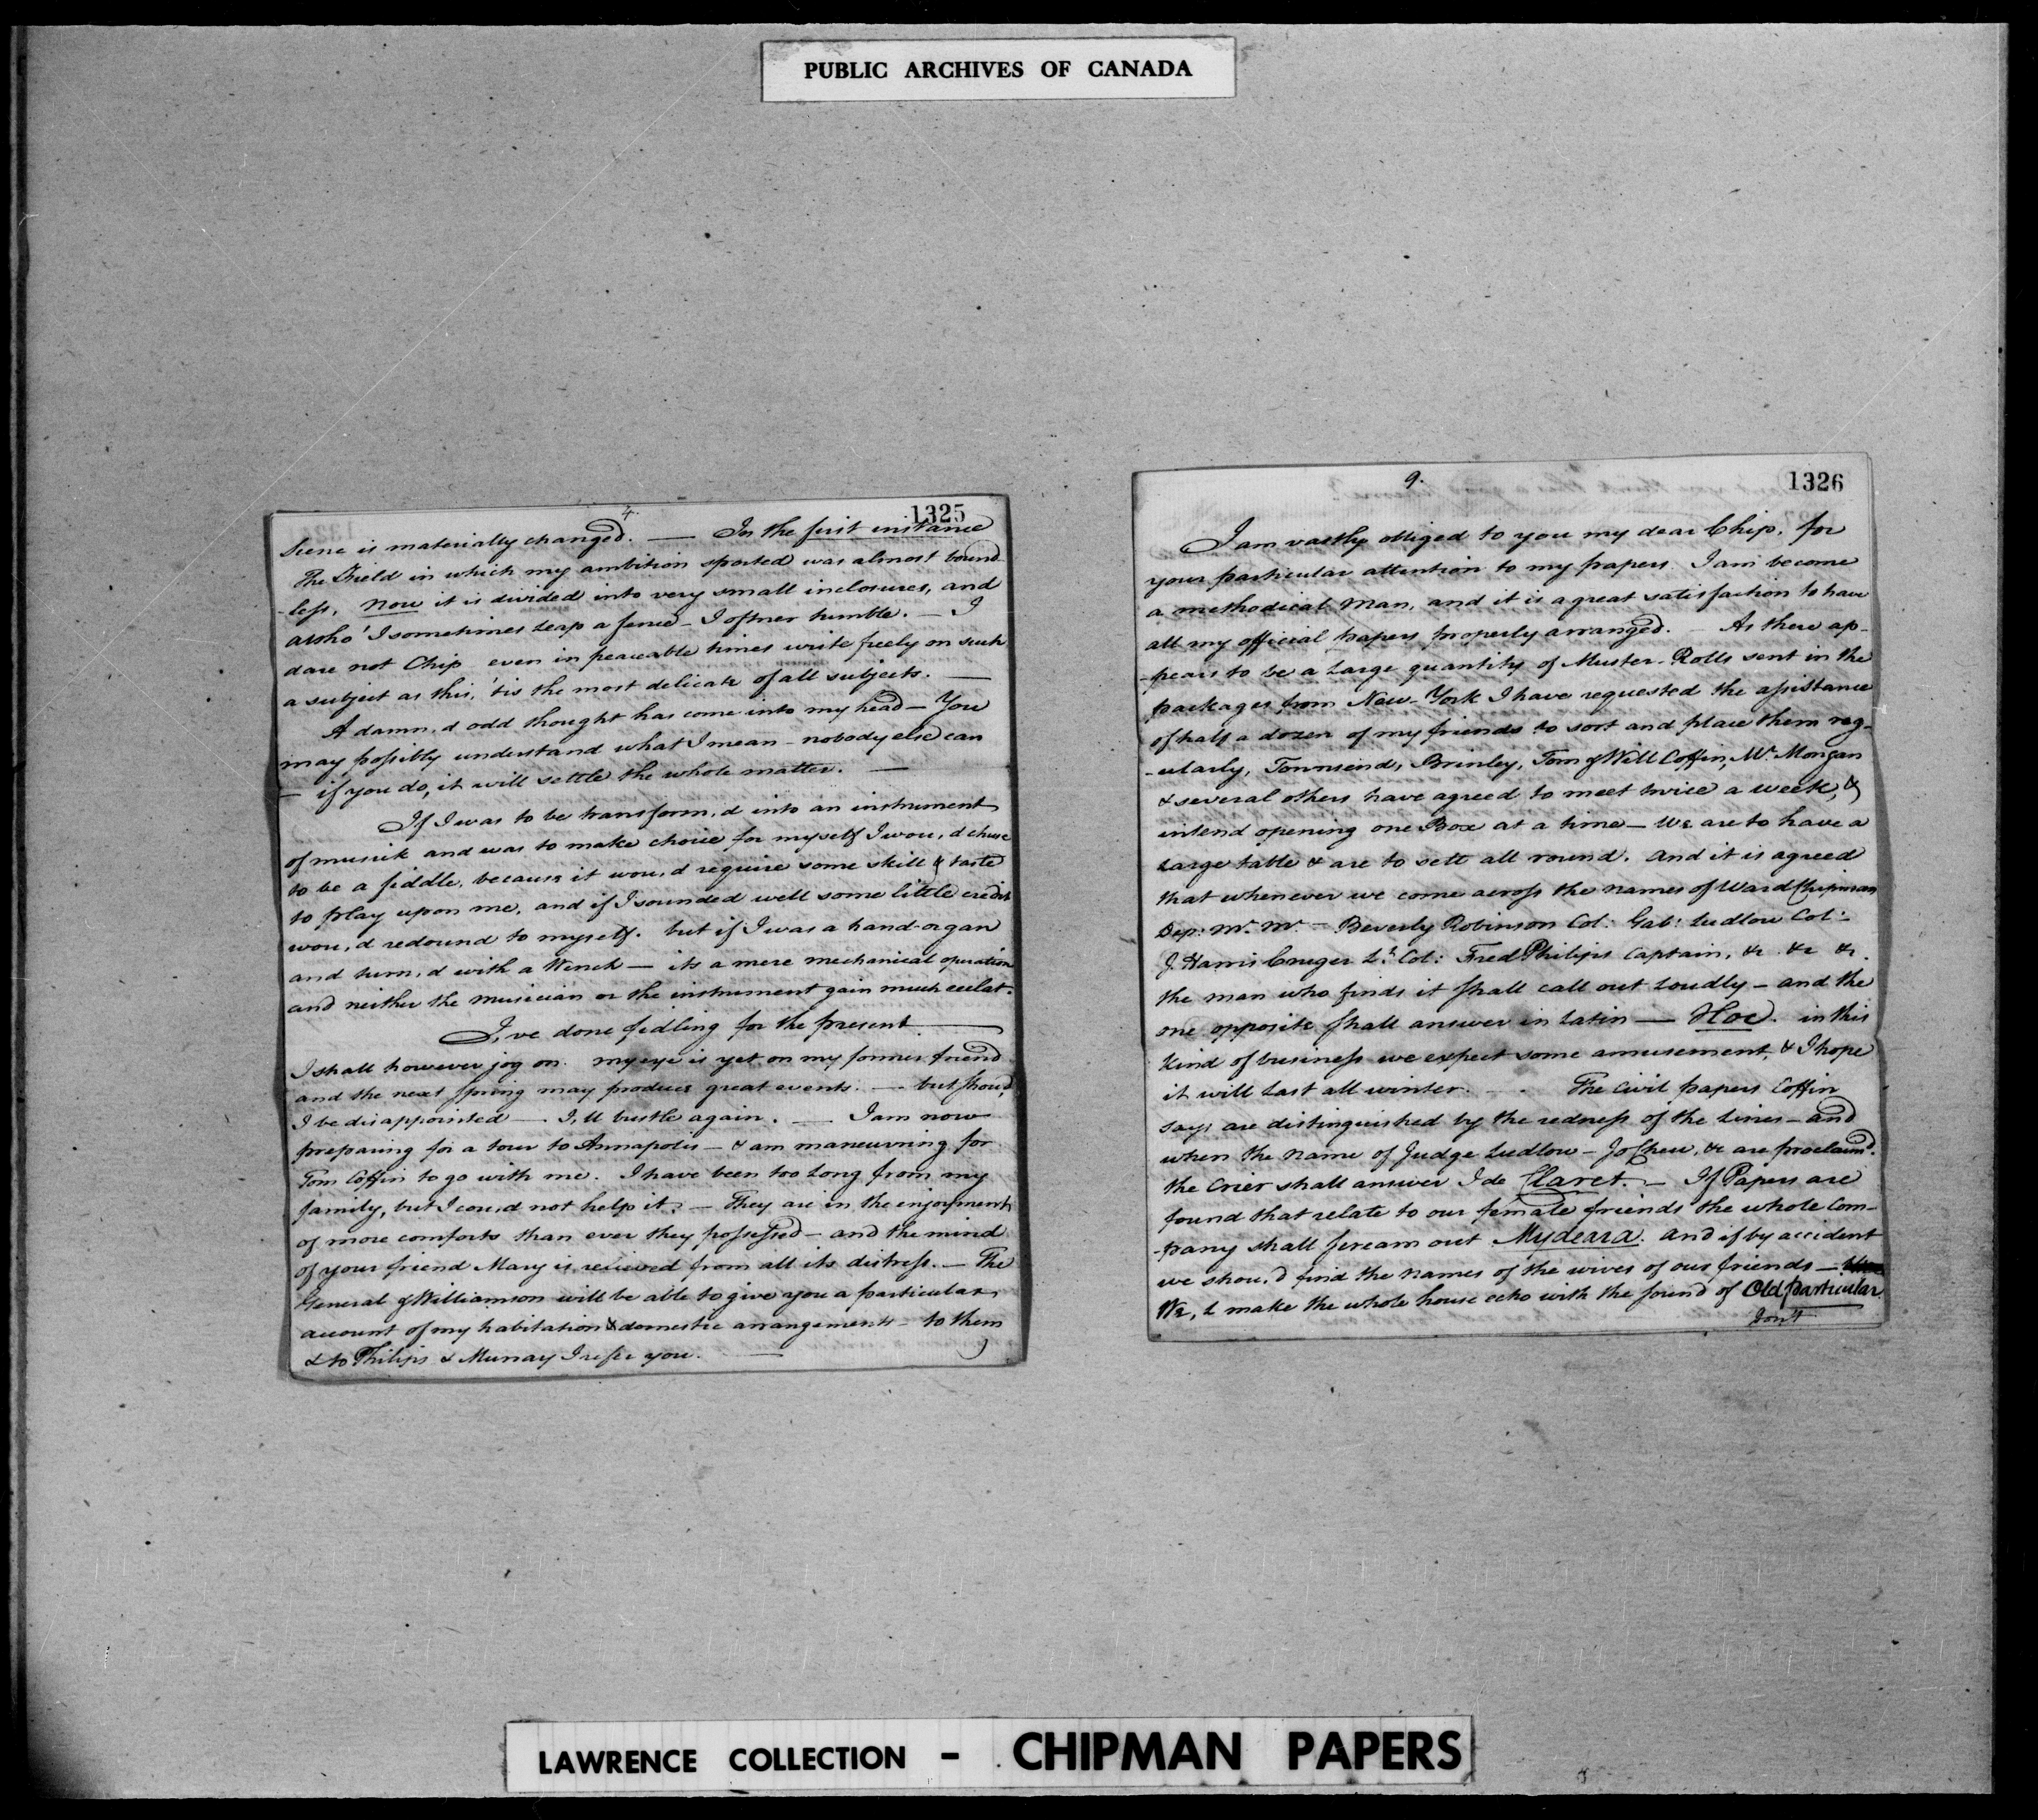 PUBLIC ARCHIVES OF CANADA
4.
1325
Scene is materially changed. — In the first instance
The Field in which my ambition sported was almost bound-
-less, Now it is divided into very small inclosures, and
altho' I sometimes leap a fence — I oftner tumble. — I
dare not Chip even in peaceable times write freely on such
a subject as this, 'tis the most delicate of all subjects. —
A damn,d odd thought has come into my head — You
may possibly understand what I mean — nobody else can
— if you do, it will settle the whole matter. —
If I was to be transform,d into an instrument
of musick and was to make choice for myself I wou,d chuse
to be a fiddle, because it wou,d require some skill & taste
to play upon me, and if I sounded well some little credit
wou,d redound to myself. but if I was a hand-organ
and turn,d with a Wench — its a mere mechanical operation
and neither the musician or the instrument gain much eclat.
I,ve done fidling for the present —
I shall however jog on. my eye is yet on my former friend
and the next spring may produce great events. — but shou,d
I be disappointed — I,ll bustle again. — I am now
preparing for a tour to Annapolis — & am maneuvring for
Tom Coffin to go with me. I have been too long from my
family, but I cou,d not help it. — They are in the enjoyment
of more comforts than ever they possessed — and the mind
of your friend Mary is relieved from all its distress. — The
General & Williamson will be able to give you a particular
account of my habitation & domestic arrangements — to them
& to Philips & Murray I refer you. —
9.
1326
I am vastly obliged to you my dear Chip, for
your particular attention to my papers. I am become
a methodical man, and it is a great satisfaction to have
all my official papers properly arranged. — As there ap-
-pears to be a large quantity of Muster-Rolls sent in the
packages from New-York I have requested the assistance
of half a dozen of my friends to sort and place them reg-
-ularly, Townsend, Brinley, Tom & Will Coffin, Mr. Morgan
& several others have agreed to meet twice a week, &
intend opening one Box at a time — We are to have a
large table & are to sett all round. and it is agreed
that whenever we come across the names of Ward Chipman
Dep: M. M. — Beverly Robinson Col: Gab: Ludlow Col:
J. Harris Cruger Lt Col: Fred Philips Captain, &c &c &c.
the man who finds it shall call out loudly — and the
one opposite shall answer in Latin — Hoc. in this
kind of business we expect some amusement, & I hope
it will last all winter. — The Civil papers Coffin
says are distinguished by the redness of the lines — and
when the name of Judge Ludlow — Jo Chew, &c are proclaim'd.
the Crier shall answer I de Claret. — If Papers are
found that relate to our female friends the whole Com-
-pany shall scream out Mydeara. and if by accident
we shou,d find the names of the wives of our friends —
We,l make the whole house echo with the sound of Old particular.
Don't
LAWRENCE COLLECTION - CHIPMAN PAPERS